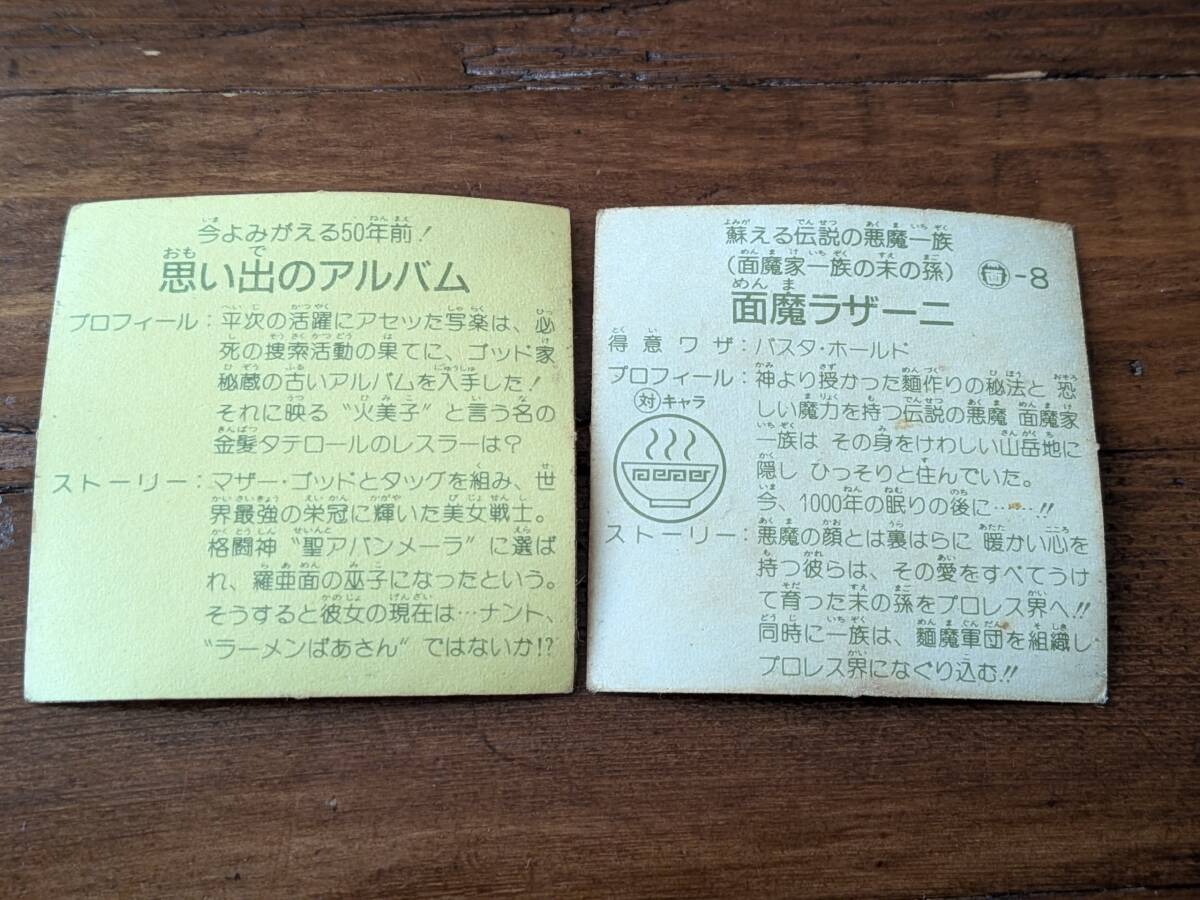 今よみがえる50年前!
思い出のアルバム
プロフィール：平次の活躍にアセッた写楽は、必
死の捜索活動の果てに、ゴッド家
秘蔵の古いアルバムを入手した!
それに映る“火美子”と言う名の
金髪タテロールのレスラーは?
ストーリー：マザー・ゴッドとタッグを組み、世
界最強の栄冠に輝いた美女戦士。
格闘神“聖アバンメーラ”に選ば
れ、羅亜面の巫子になったという。
そうすると彼女の現在は…ナント、
“ラーメンばあさん”ではないか!?
蘇える伝説の悪魔一族
(面魔家一族の末の孫) 面-8
面魔ラザーニ
得意ワザ：パスタ・ホールド
プロフィール：神より授かった麺作りの秘法と 恐
対キャラ
しい魔力を持つ伝説の悪魔 面魔家
一族は その身をけわしい山岳地に
隠し ひっそりと住んでいた。
今、1000年の眠りの後に……!!
ストーリー：悪魔の顔とは裏はらに 暖かい心を
持つ彼らは、その愛をすべてうけ
て育った末の孫をプロレス界へ!!
同時に一族は、麺魔軍団を組織し
プロレス界になぐり込む!!